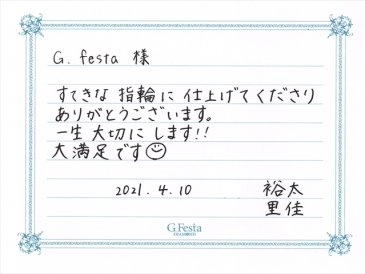 G. festa 様
すてきな 指輪に 仕上げてくださり
ありがとうございます。
一生 大切に します!!
大満足です☺
2021. 4. 10 裕太
里佳
G.Festa